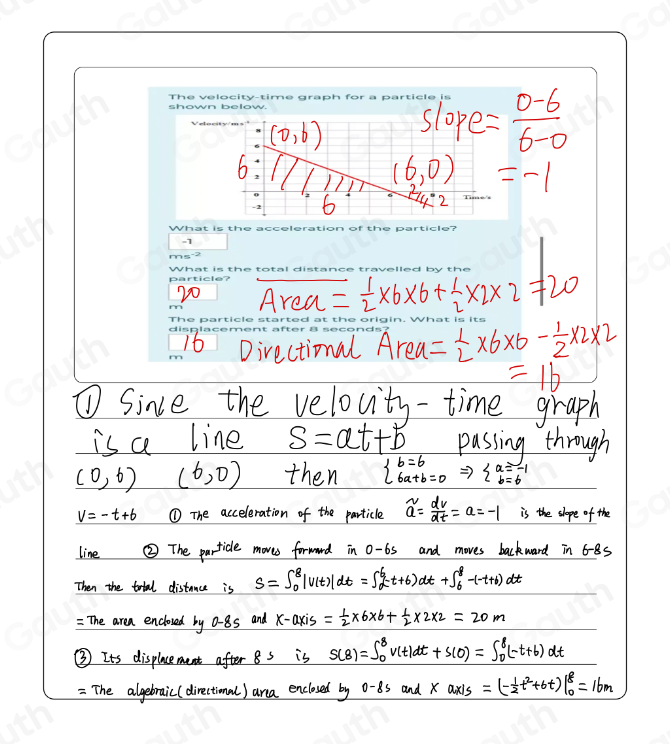 The velocity-time graph for a particle is
shown below.
slope= 0-6
6-0
= -1
Velocity/ms⁻¹
(0,6)
(6,0)
8
6
4
2
0
-2
2
4
6
8
Time/s
6
6
2
2
What is the acceleration of the particle?
-1
ms⁻²
What is the total distance travelled by the
particle?
20
m
Area = ½×6×6+½×2×2=20
The particle started at the origin. What is its
displacement after 8 seconds?
16
m
Directional Area=½×6×6-½×2×2
= 16
① Since the velocity-time graph
is a line S=at+b passing through
(0,6) (6,0) then { b=6 6a+b=0 ⇒ { a=-1 b=6
V=-t+6 ① The acceleration of the particle ã = dv/dt = a = -1 is the slope of the
line ② The particle moves forward in 0-6s and moves backward in 6-8s
Then the total distance is S=∫₀⁸|V(t)|dt =∫₀⁶(-t+6)dt+∫₆⁸-(-t+6)dt
=The area enclosed by 0-8s and X-axis = ½×6×6+½×2×2 = 20 m
③ Its displacement after 8 s is S(8)=∫₀⁸V(t)dt+S(0)=∫₀⁸(-t+6)dt
= The algebraic(directional) area enclosed by 0-8s and X axis = (-½t²+6t)|₀⁸=16m
Gauth